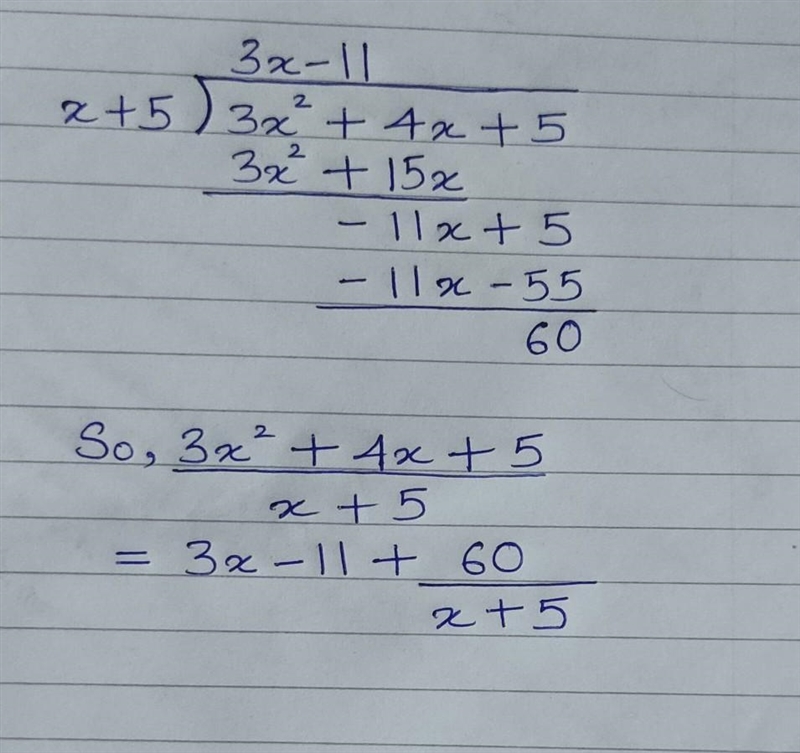 3x - 11
x + 5 ) 3x² + 4x + 5
3x² + 15x
- 11x + 5
- 11x - 55
60
So, 3x² + 4x + 5
x + 5
= 3x - 11 + 60
x + 5